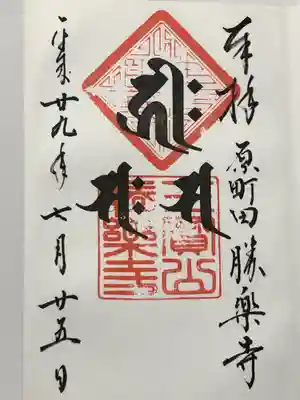 奉拝 原町田 勝樂寺
𑖮𑖿𑖨𑖱𑖾
𑖭
𑖭𑖾
平成廿九年七月廿五日